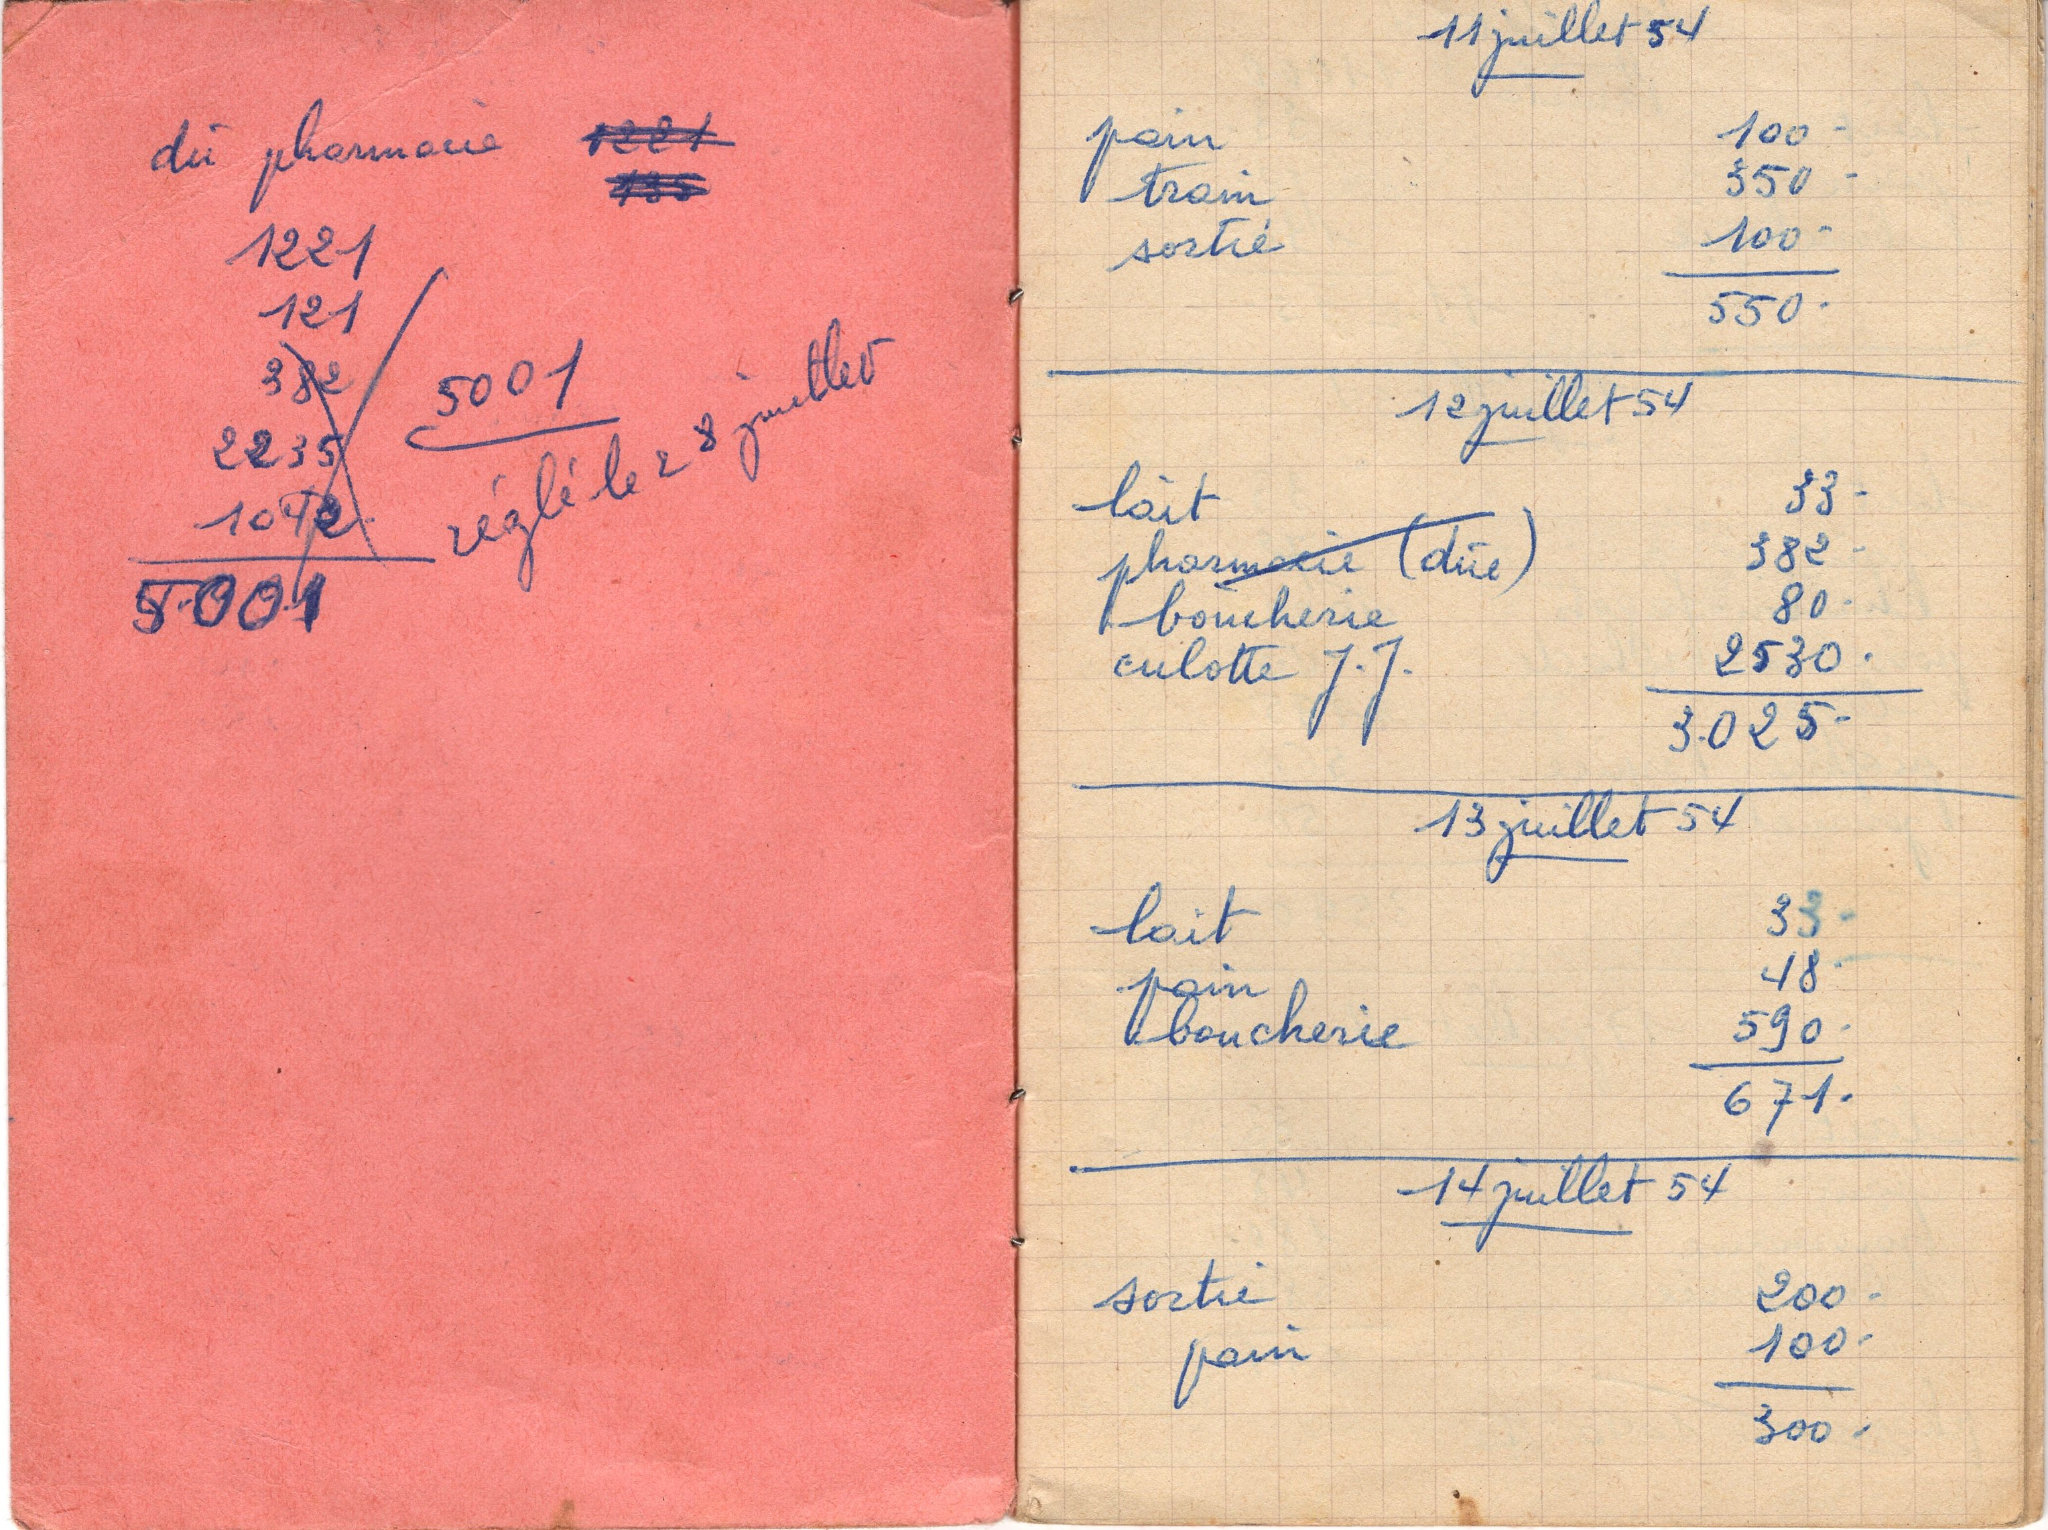 dû pharmacie 1221
135
1221
121
382
2235
1042.
5.001
5001
réglé le 28 juillet
11 juillet 54
pain 100-
train 350-
sortie 100-
550-
12 juillet 54
lait 33-
pharmacie (dûe) 382-
boucherie 80-
culotte J.J. 2530.
3.025-
13 juillet 54
lait 33-
pain 48-
boucherie 590-
671.
14 juillet 54
sortie 200-
pain 100-
300-